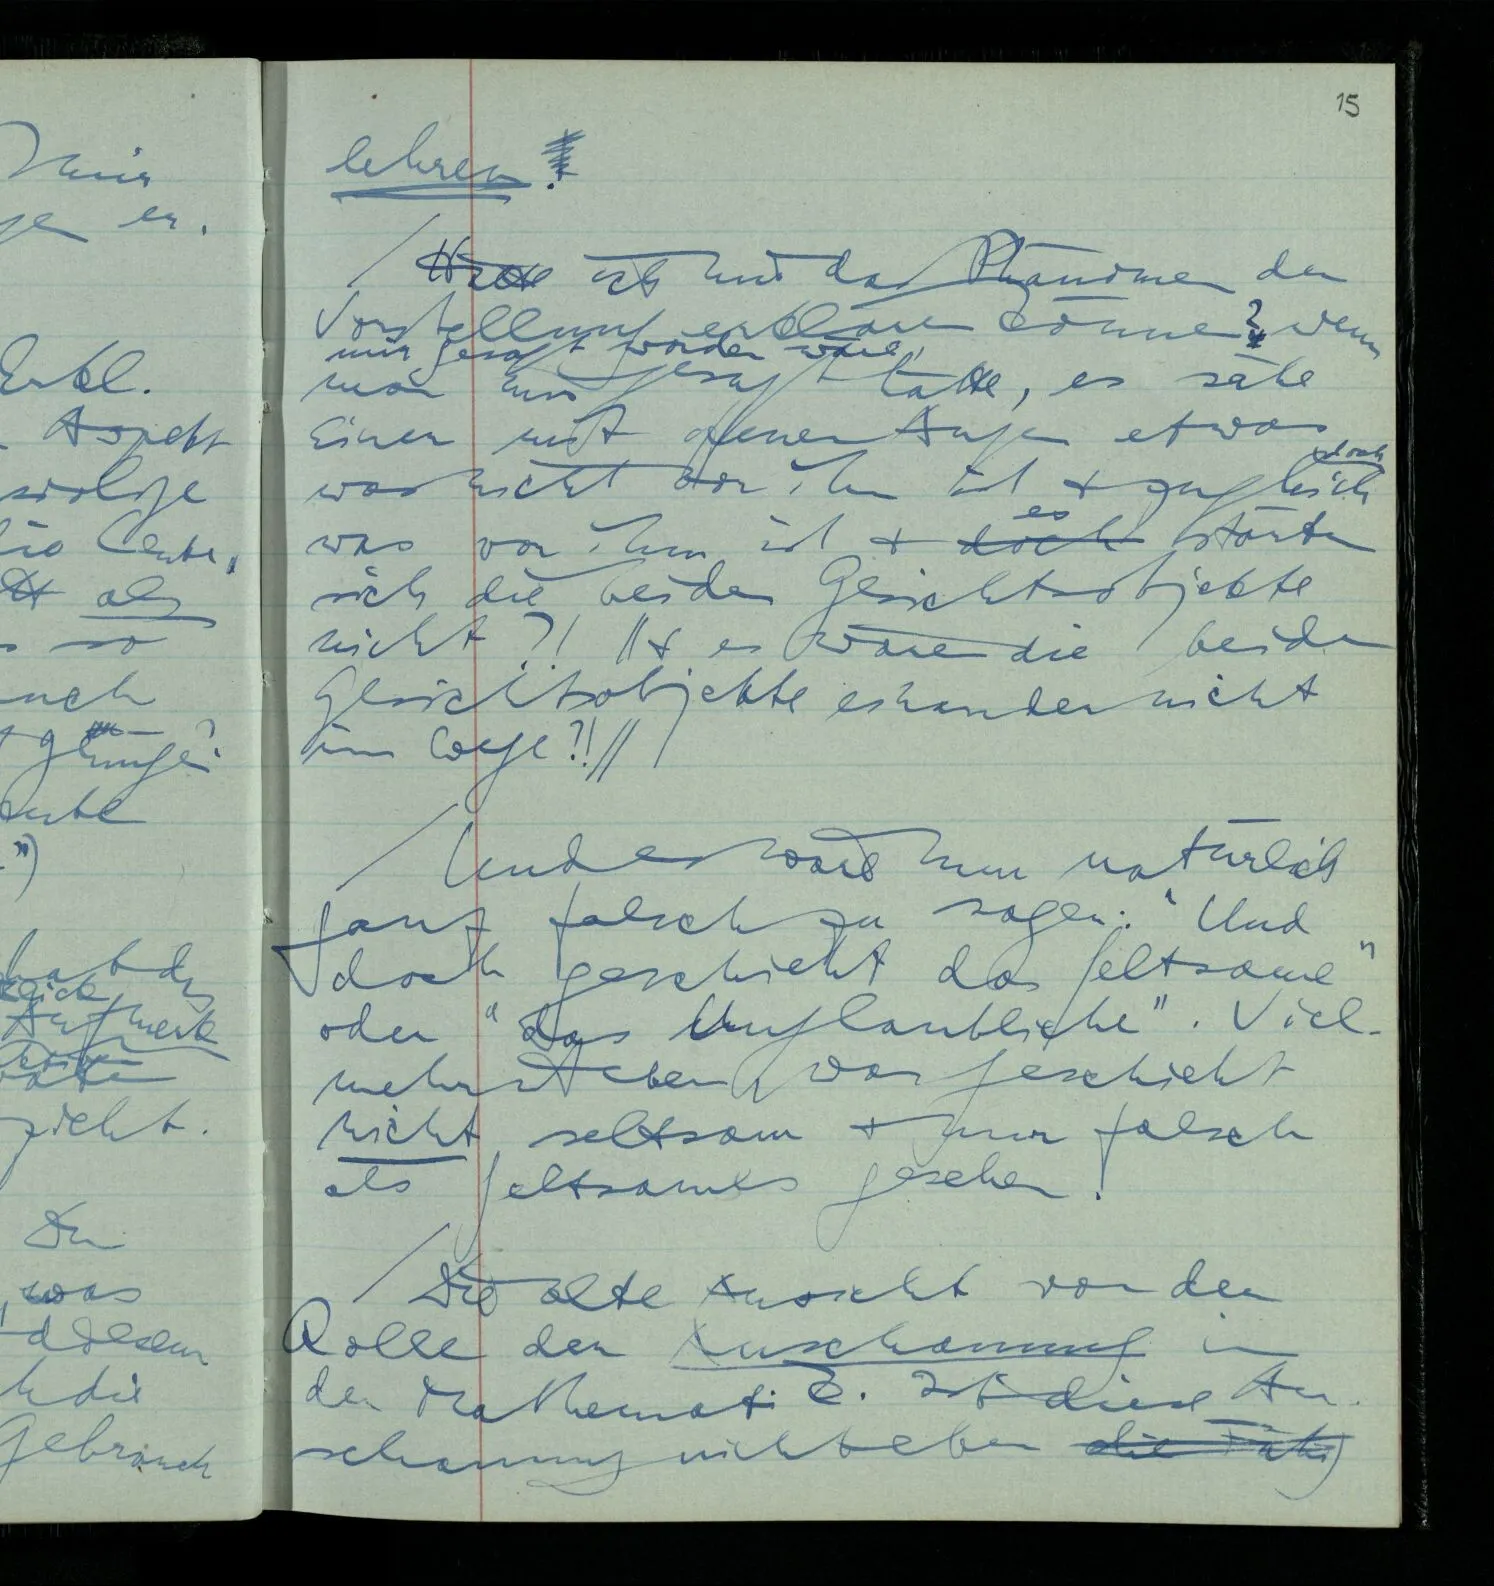 Mir
en.
Erkl.
Aspekt
als
so
auch
")
Aufmerk
zieht.
Du
was
diesem
die
Gebrauch
15
lehren!
Hätte ich mir das Phänomen der
Vorstellung erklären können? wenn
mir gesagt worden wäre,
man mir gesagt hätte, es sähe
Einer mit offenen Augen etwas
doch
was nicht vor ihm ist + zugleich
es
was vor ihm ist + doch störten
sich die beiden Gesichtsobjekte
nicht?! // + es wären die beiden
Gesichtsobjekte einander nicht
im Wege?! //
Und es wäre nun natürlich
ganz falsch zu sagen: "Und
doch geschieht das Seltsame"
oder "das Unglaubliche". Viel-
mehr ist eben, was geschieht
nicht seltsam + nur falsch
als Seltsames gesehen!
Die alte Ansicht von der
Rolle der Anschauung in
der Mathematik. Ist diese An-
schauung nicht eben die Fähig